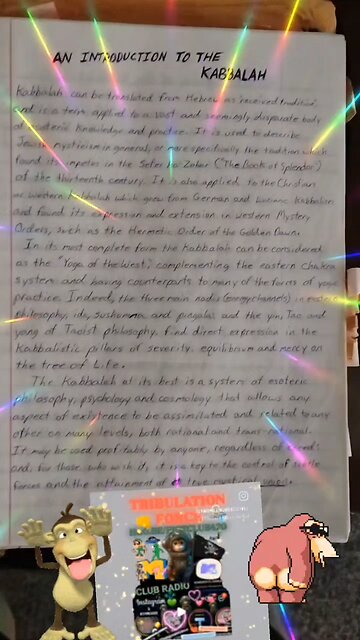 AN INTRODUCTION TO THE
KABBALAH
Kabbalah can be translated from Hebrew as 'received tradition'
and is a term applied to a vast and seemingly disparate body
of esoteric knowledge and practice. It is used to describe
Jewish mysticism in general, or more specifically the tradition which
found its impetus in the Sefer ha Zohar ("The Book of Splendor")
of the thirteenth century. It is also applied to the Christian
or Western Kabbalah which grew from German and Kabbalism
and found its expression and extension in Western Mystery
Orders, such as the Hermetic Order of the Golden Dawn.
In its most complete form the Kabbalah can be considered
as the "Yoga of the West", complementing the eastern Chakra
system and having counterparts to many of the forces of yoga
practice. Indeed, the three main nadis (energy channels) in eastern
philosophy, ida, sushumna, and pingala and the yin, Tao and
yang of Taoist philosophy, find direct expression in the
Kabbalistic pillars of severity, equilibrium and mercy on
the tree of Life.
The Kabbalah at its best is a system of esoteric
philosophy, psychology and cosmology that allows any
aspect of existence to be assimilated and related to any
other on many levels, both rational and trans-rational.
It may be used profitably by anyone, regardless of creed
and, for those who wish it, is a key to the control of subtle
forces and the attainment of true mystical union.
TRIBULATION
FORCE
CLUB RADIO
Instagram